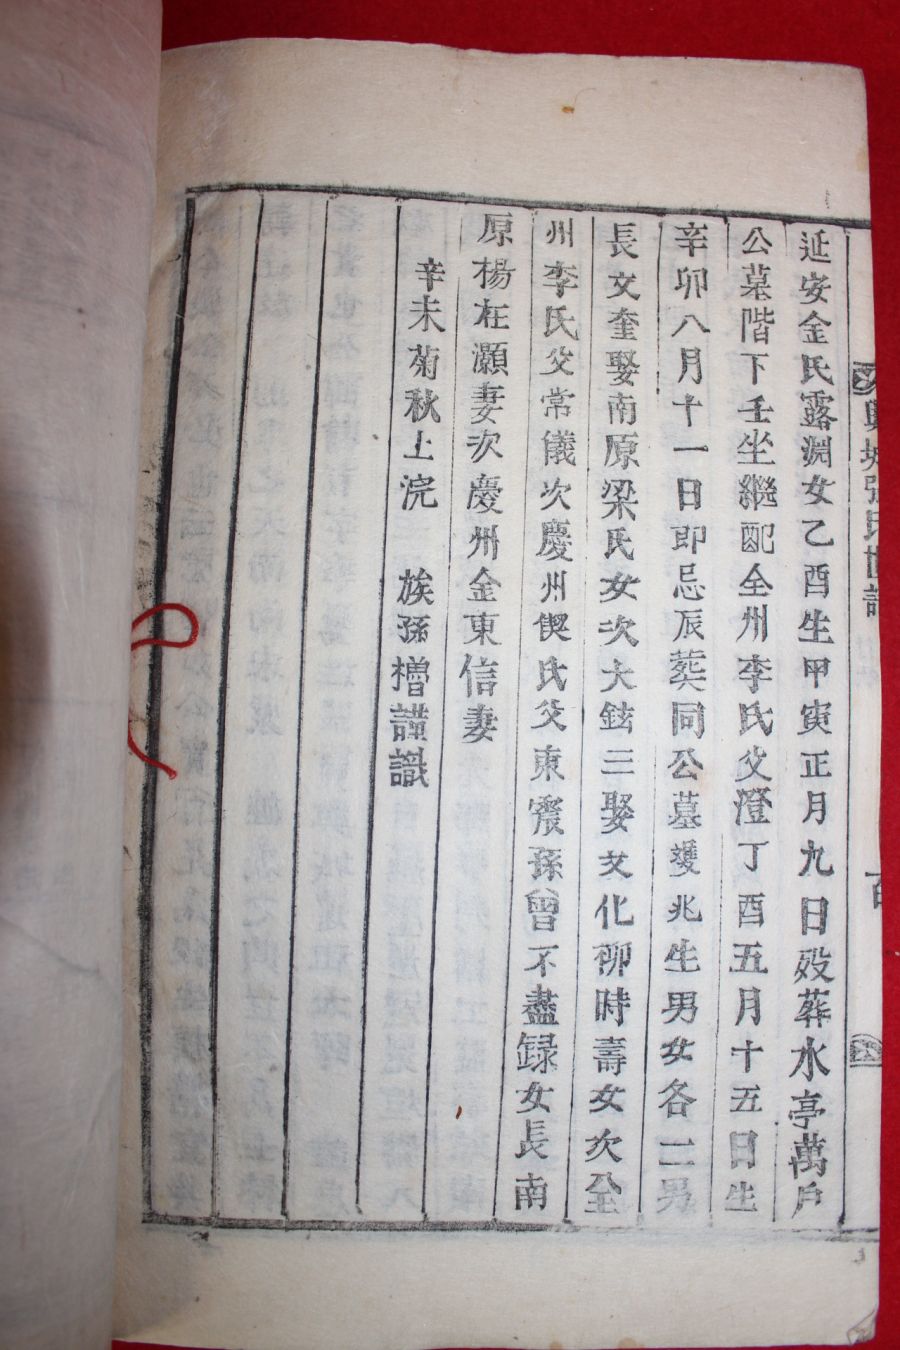 延安金氏露淵女乙酉生甲寅正月九日歿葬水亭萬戶
公墓階下壬坐繼配全州李氏父澄丁酉五月十五日生
辛卯八月十一日即忌辰葬同公墓雙兆生男女各二男
長文奎娶南原梁氏女次大鉉三娶文化柳時壽女次全
州李氏父常儀次慶州偰氏父東䆠孫曾不盡録女長南
原楊在灝妻次慶州金東信妻
辛未菊秋上浣 族孫橧謹識
興城張氏世譜